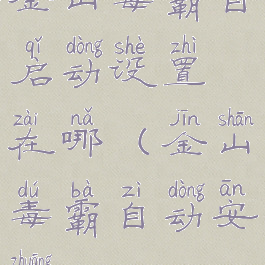 金山毒霸自
qǐ dòng shè zhì
启动设置
zài nǎ jīn shān
在哪（金山
dú bà zì dòng ān
毒霸自动安
zhuāng